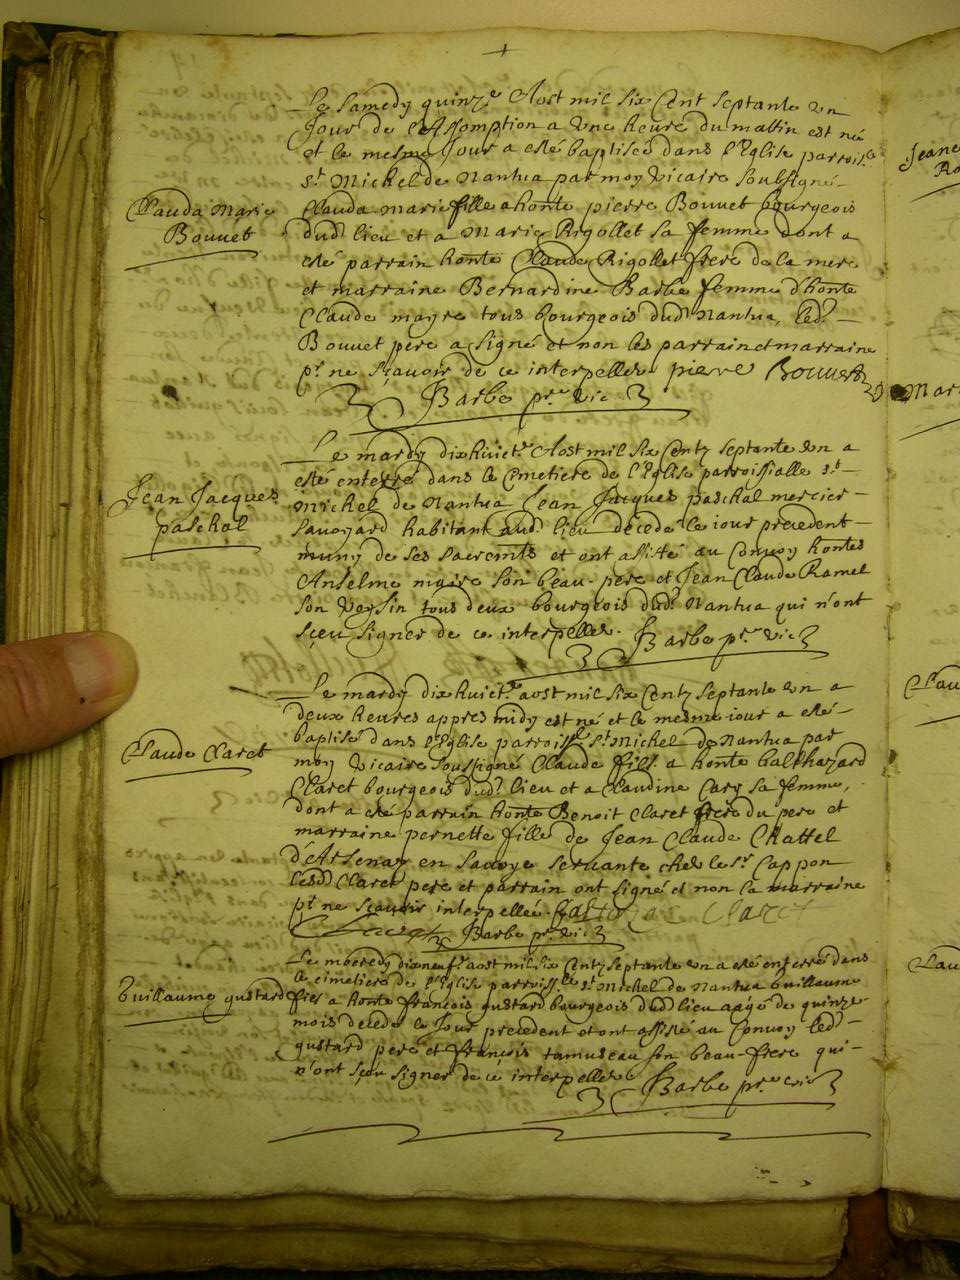 Le samedy quinze Aost mil six Cent septante un
Jour de l'Assomption a une heure du mattin est né
et le mesme Jour a esté baptisée dans l'Eglise parroiss.e
st Michel de Nantua par moy vicaire soubsigné
Clauda Marie
Bouvet
Clauda Marie fille a honte pierre Bouvet bourgeois
dud lieu et a Marie Rigollet sa femme dont a
esté parrain honte Claude Rigollet frere de la mere
et marraine Bernardine Barbe femme d'honte
Claude mayre tous bourgeois dud Nantua, led.
Bouvet pere a signé et non les parrain et marraine
pr ne sçavoir de ce interpellés pierre Bouvet
Barbe pre vic
Le mardy dixhuiet.e Aost mil six Centz septante un a
esté enterré dans le Cimetiere de l'Eglise parroissialle st
Jean Jacques
paschal
Michel de Nantua Jean Jacques paschal mercier
savoyard habitant aud lieu decedé le jour precedent
muny de ses sacremts et ont assisté au Convoy hontes
Anselme mgire son beau-pere et Jean Claude Ramel
son voysin tous deux bourgeois dud Nantua qui n'ont
sçeu signer de ce interpellés. Barbe pre vic
Le mardy dixhuiet.e aost mil six Centz septante un a
deux heures appres midy est né et le mesme jour a esté
baptisé dans l'Eglise parroiss.e st Michel de Nantua par
Claude Claret
moy vicaire soussigné Claude fils a honte balthazard
Claret bourgeois dud lieu et a Claudine Cary sa femme,
dont a esté parrain honte Benoit Claret frere du pere et
marraine pernette fille de Jean Claude Chattel
d'Arsenay en savoye servante chez le sr Cappon
lesd Claret pere et parrain ont signé et non la marraine
pr ne sçavoir interpellée. baltazar Claret
Claret Barbe pre vic
Le mbcredy dixneuf.e aost mil six Centz septante un a esté enterré dans
le cimetiere de l'Eglise parroiss.le st Michel de Nantua Guillaume
Guillaume gustard
fils a honte françois gustard bourgeois dud lieu aagé de quinze
mois decedé le Jour precedent et ont assisté au Convoy led
gustard pere et françois tamuseau son beau-frere qui
n'ont sçeu signer de ce interpellés Barbe pre vic
Jeane
Mar
Clau
Clau